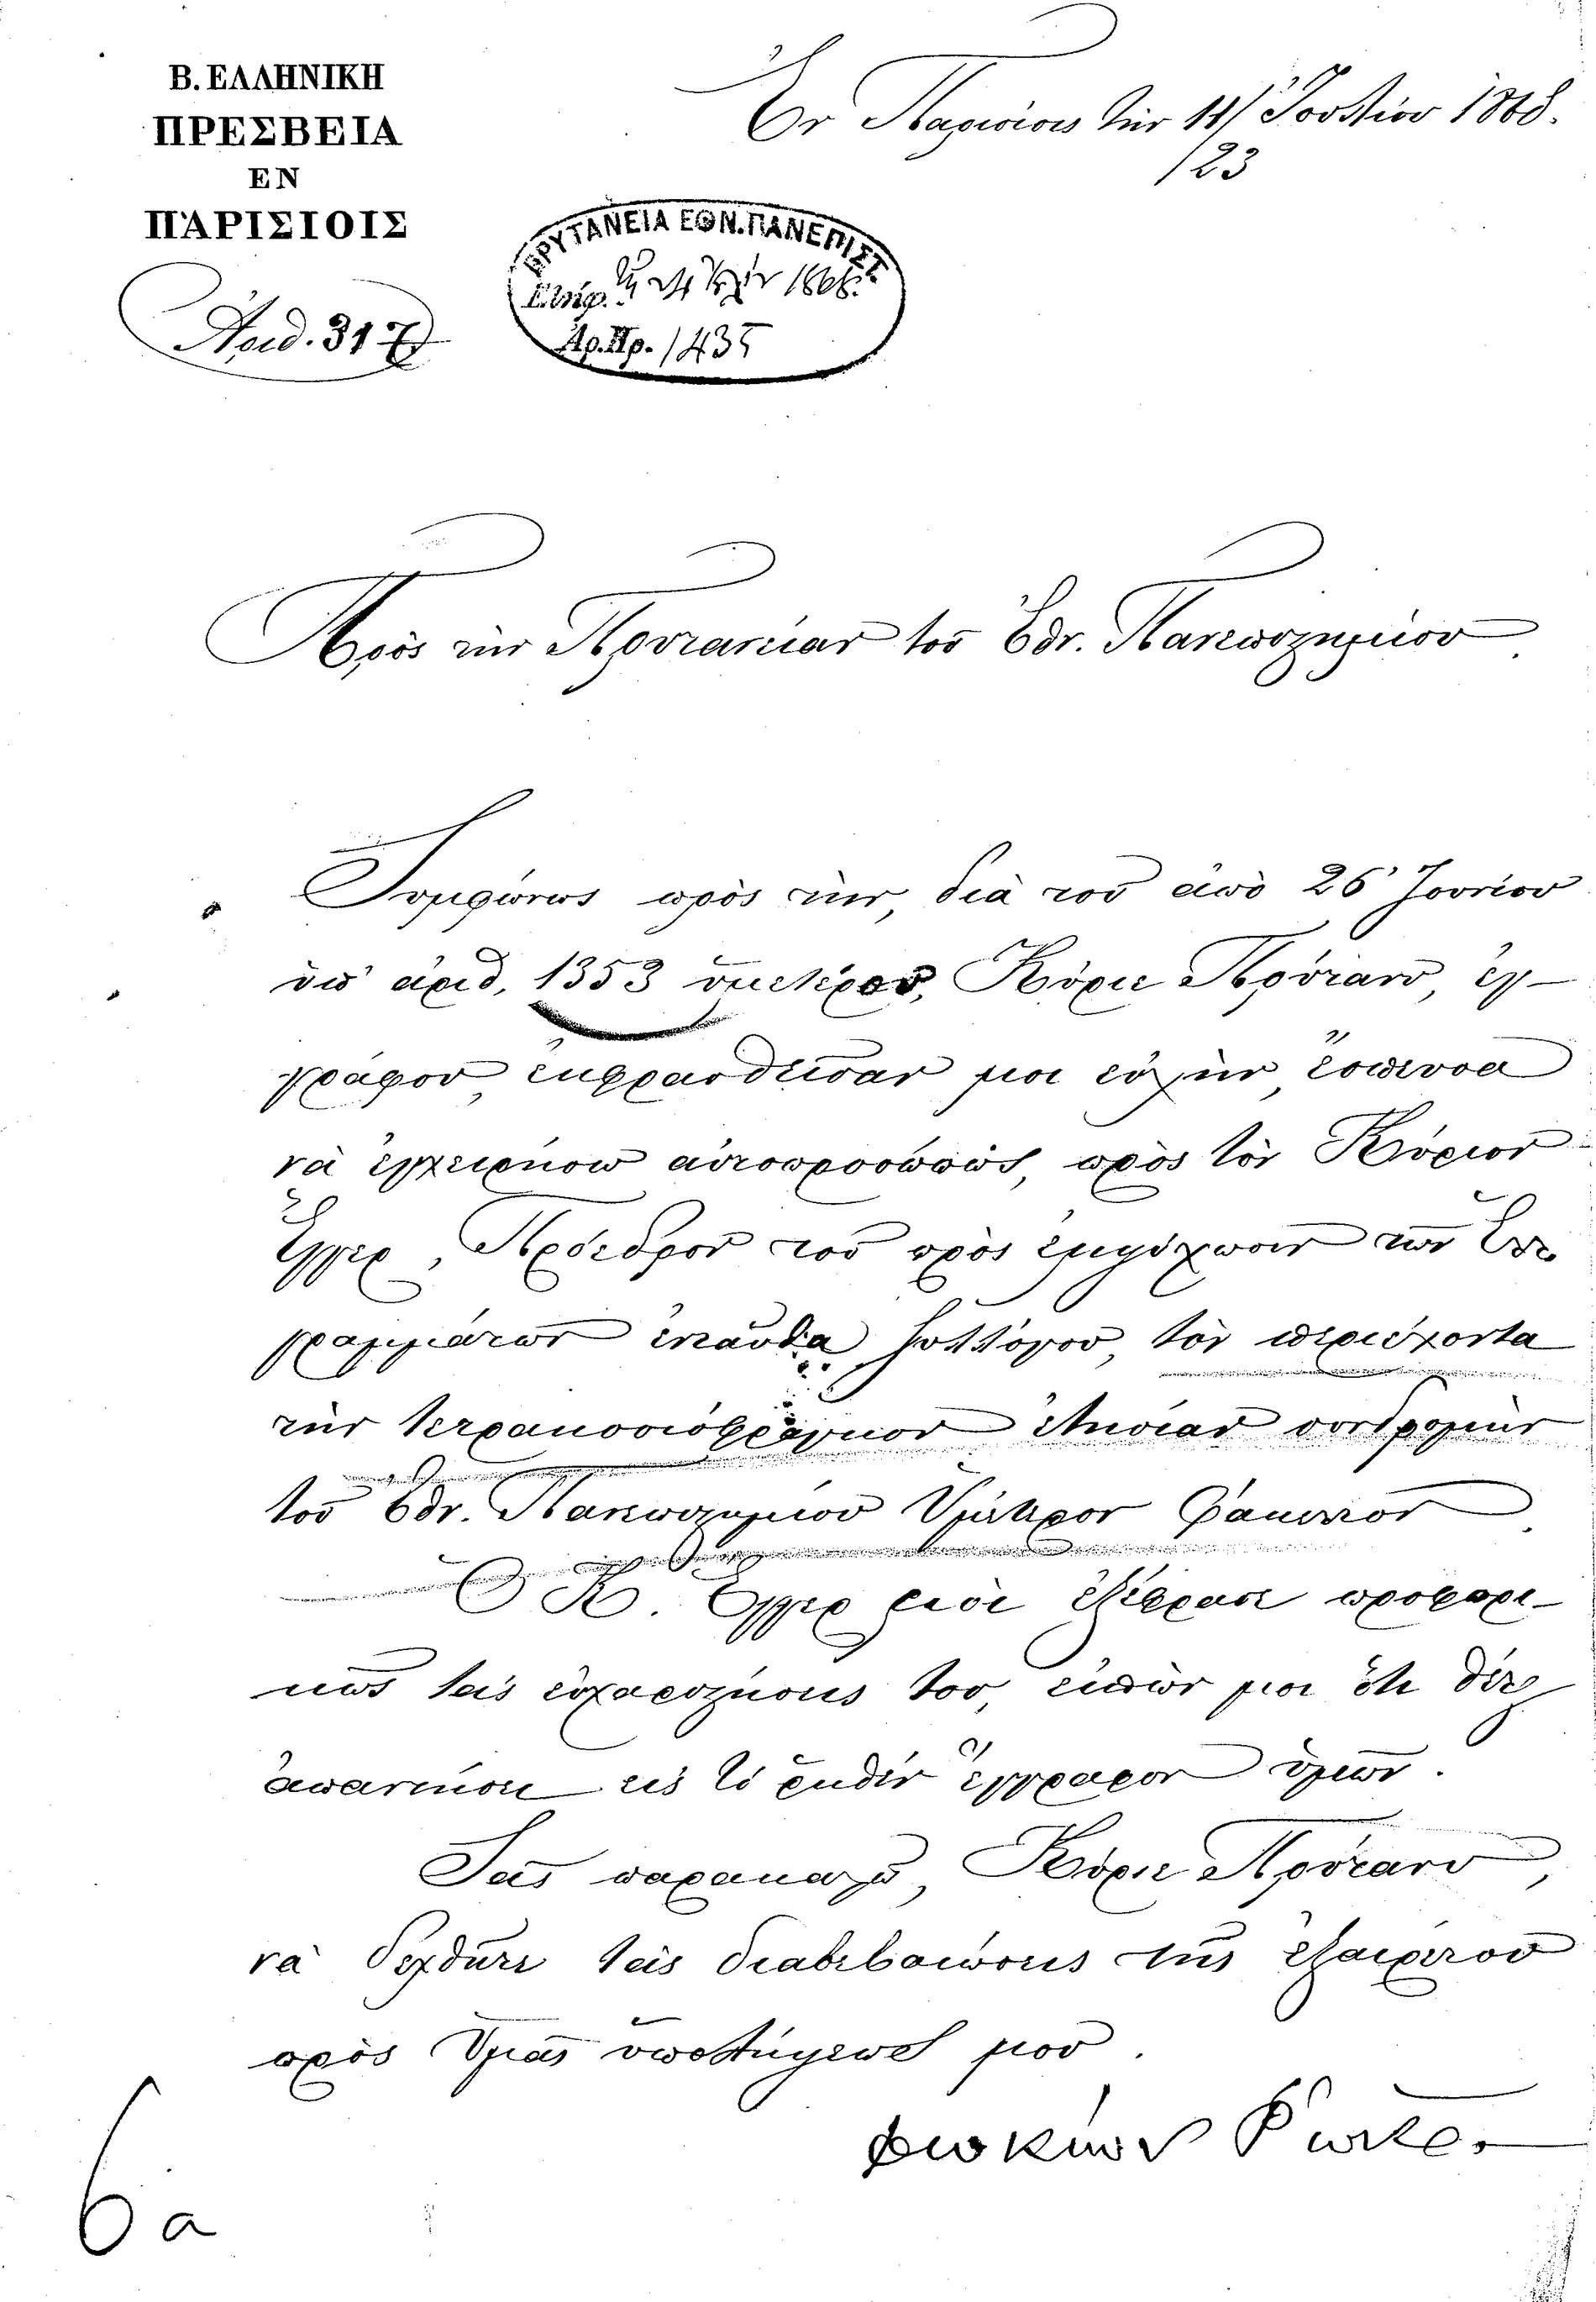 Β. ΕΛΛΗΝΙΚΗ
ΠΡΕΣΒΕΙΑ
ΕΝ
ΠΑΡΙΣΙΟΙΣ
Ἀριθ. 317
Ἐν Παρισίοις τὴν 11/23 Ἰουλίου 1868.
ΠΡΥΤΑΝΕΙΑ ΕΘΝ. ΠΑΝΕΠΙΣΤ.
Ἐλήφ. τῇ 1868.
Ἀρ. Πρ. 1435
Πρὸς τὴν Πρυτανείαν τοῦ Ἐθν. Πανεπιστημίου
Συμφώνως πρὸς τὴν, διὰ τοῦ ἀπὸ 26 Ἰουνίου
ὑπ' ἀριθ. 1353 ὑμετέρου, Κύριε Πρύτανι, ἐγ-
γράφου, ἐκφρασθεῖσαν μοι εὐχὴν, ἔσπευσα
νὰ ἐγχειρήσω αὐτοπροσώπως, πρὸς τὸν Κύριον
Ἔγγερ, Πρόεδρον τοῦ πρὸς ἐμψύχωσιν τῶν Ἑλ.
γραμμάτων ἐνταῦθα Συλλόγου, τὸν περιέχοντα
τὴν πεντηκοντάφραγκον ἐτησίαν συνδρομὴν
τοῦ Ἐθν. Πανεπιστημίου Ὑμέτερον φάκελλον.
Ὁ Κ. Ἔγγερ μοὶ ἐξέφρασε προφορι-
κῶς τὰς εὐχαριστήσεις του, εἰπών μοι ὅτι θέλει
ἀπαντήσει εἰς τὸ ῥηθὲν ἔγγραφον ὑμῶν.
Σᾶς παρακαλῶ, Κύριε Πρύτανι,
νὰ δεχθῆτε τὰς διαβεβαιώσεις τῆς ἐξαιρέτου
πρὸς Ὑμᾶς ὑπολήψεώς μου.
Φωκίων Ῥώκ
6 α